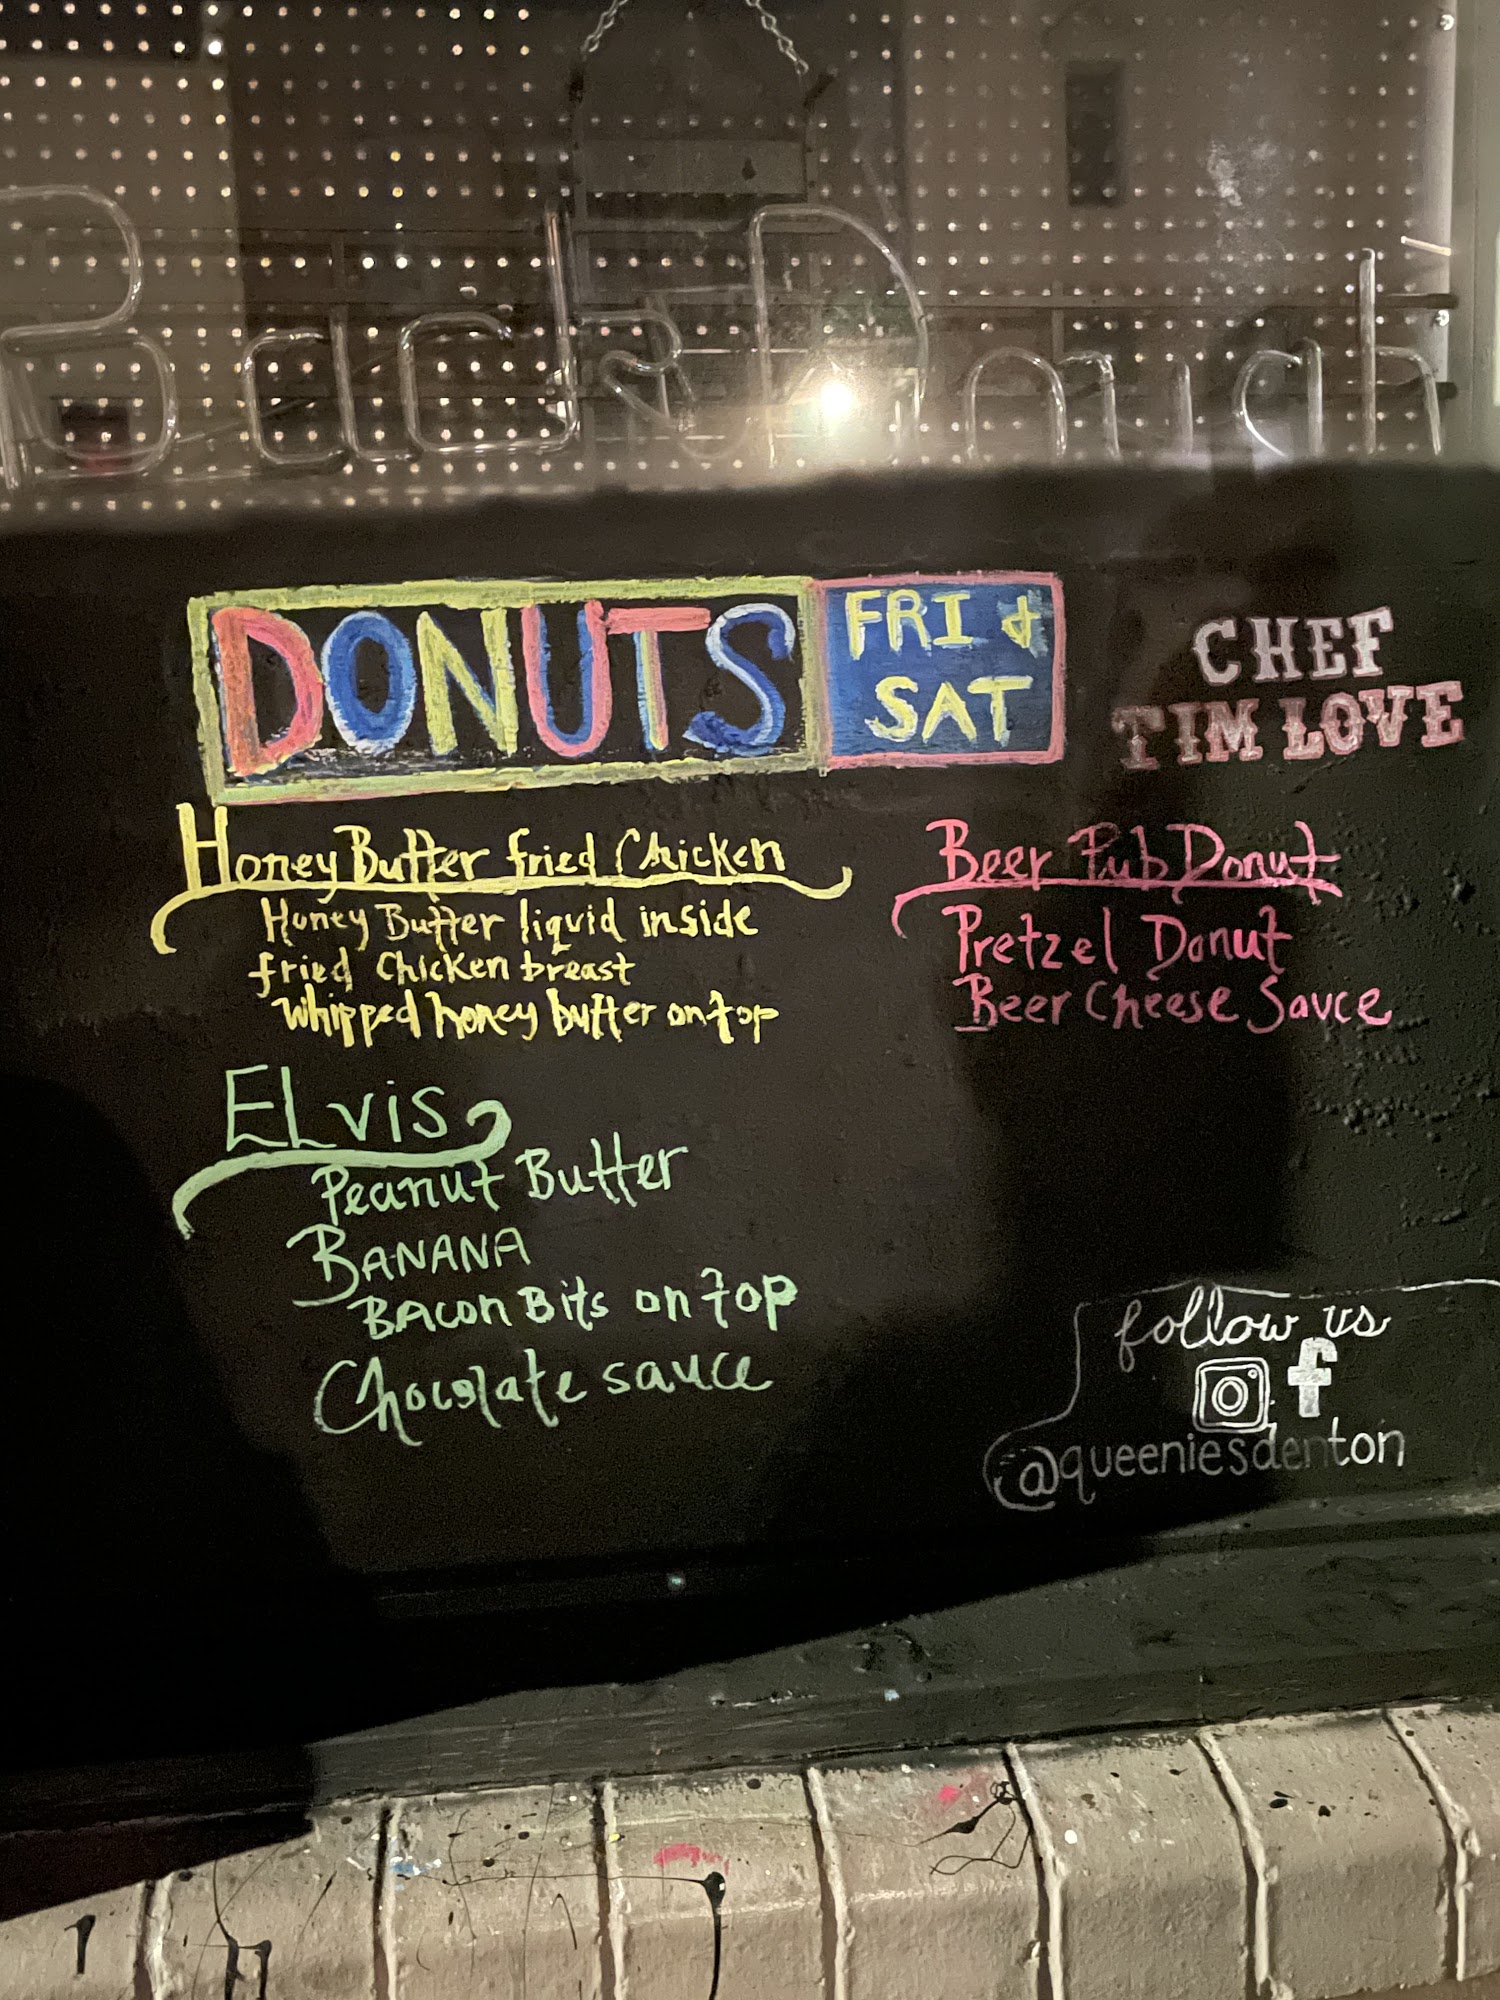 Back Dough
DONUTS
FRI &
SAT
CHEF
TIM LOVE
Honey Butter fried Chicken
Honey Butter liquid inside
fried chicken breast
whipped honey butter on top
Beer Pub Donut
Pretzel Donut
Beer Cheese Sauce
ELvis
Peanut Butter
BANANA
BACON Bits on top
Chocolate sauce
follow us
f
@queeniesdenton